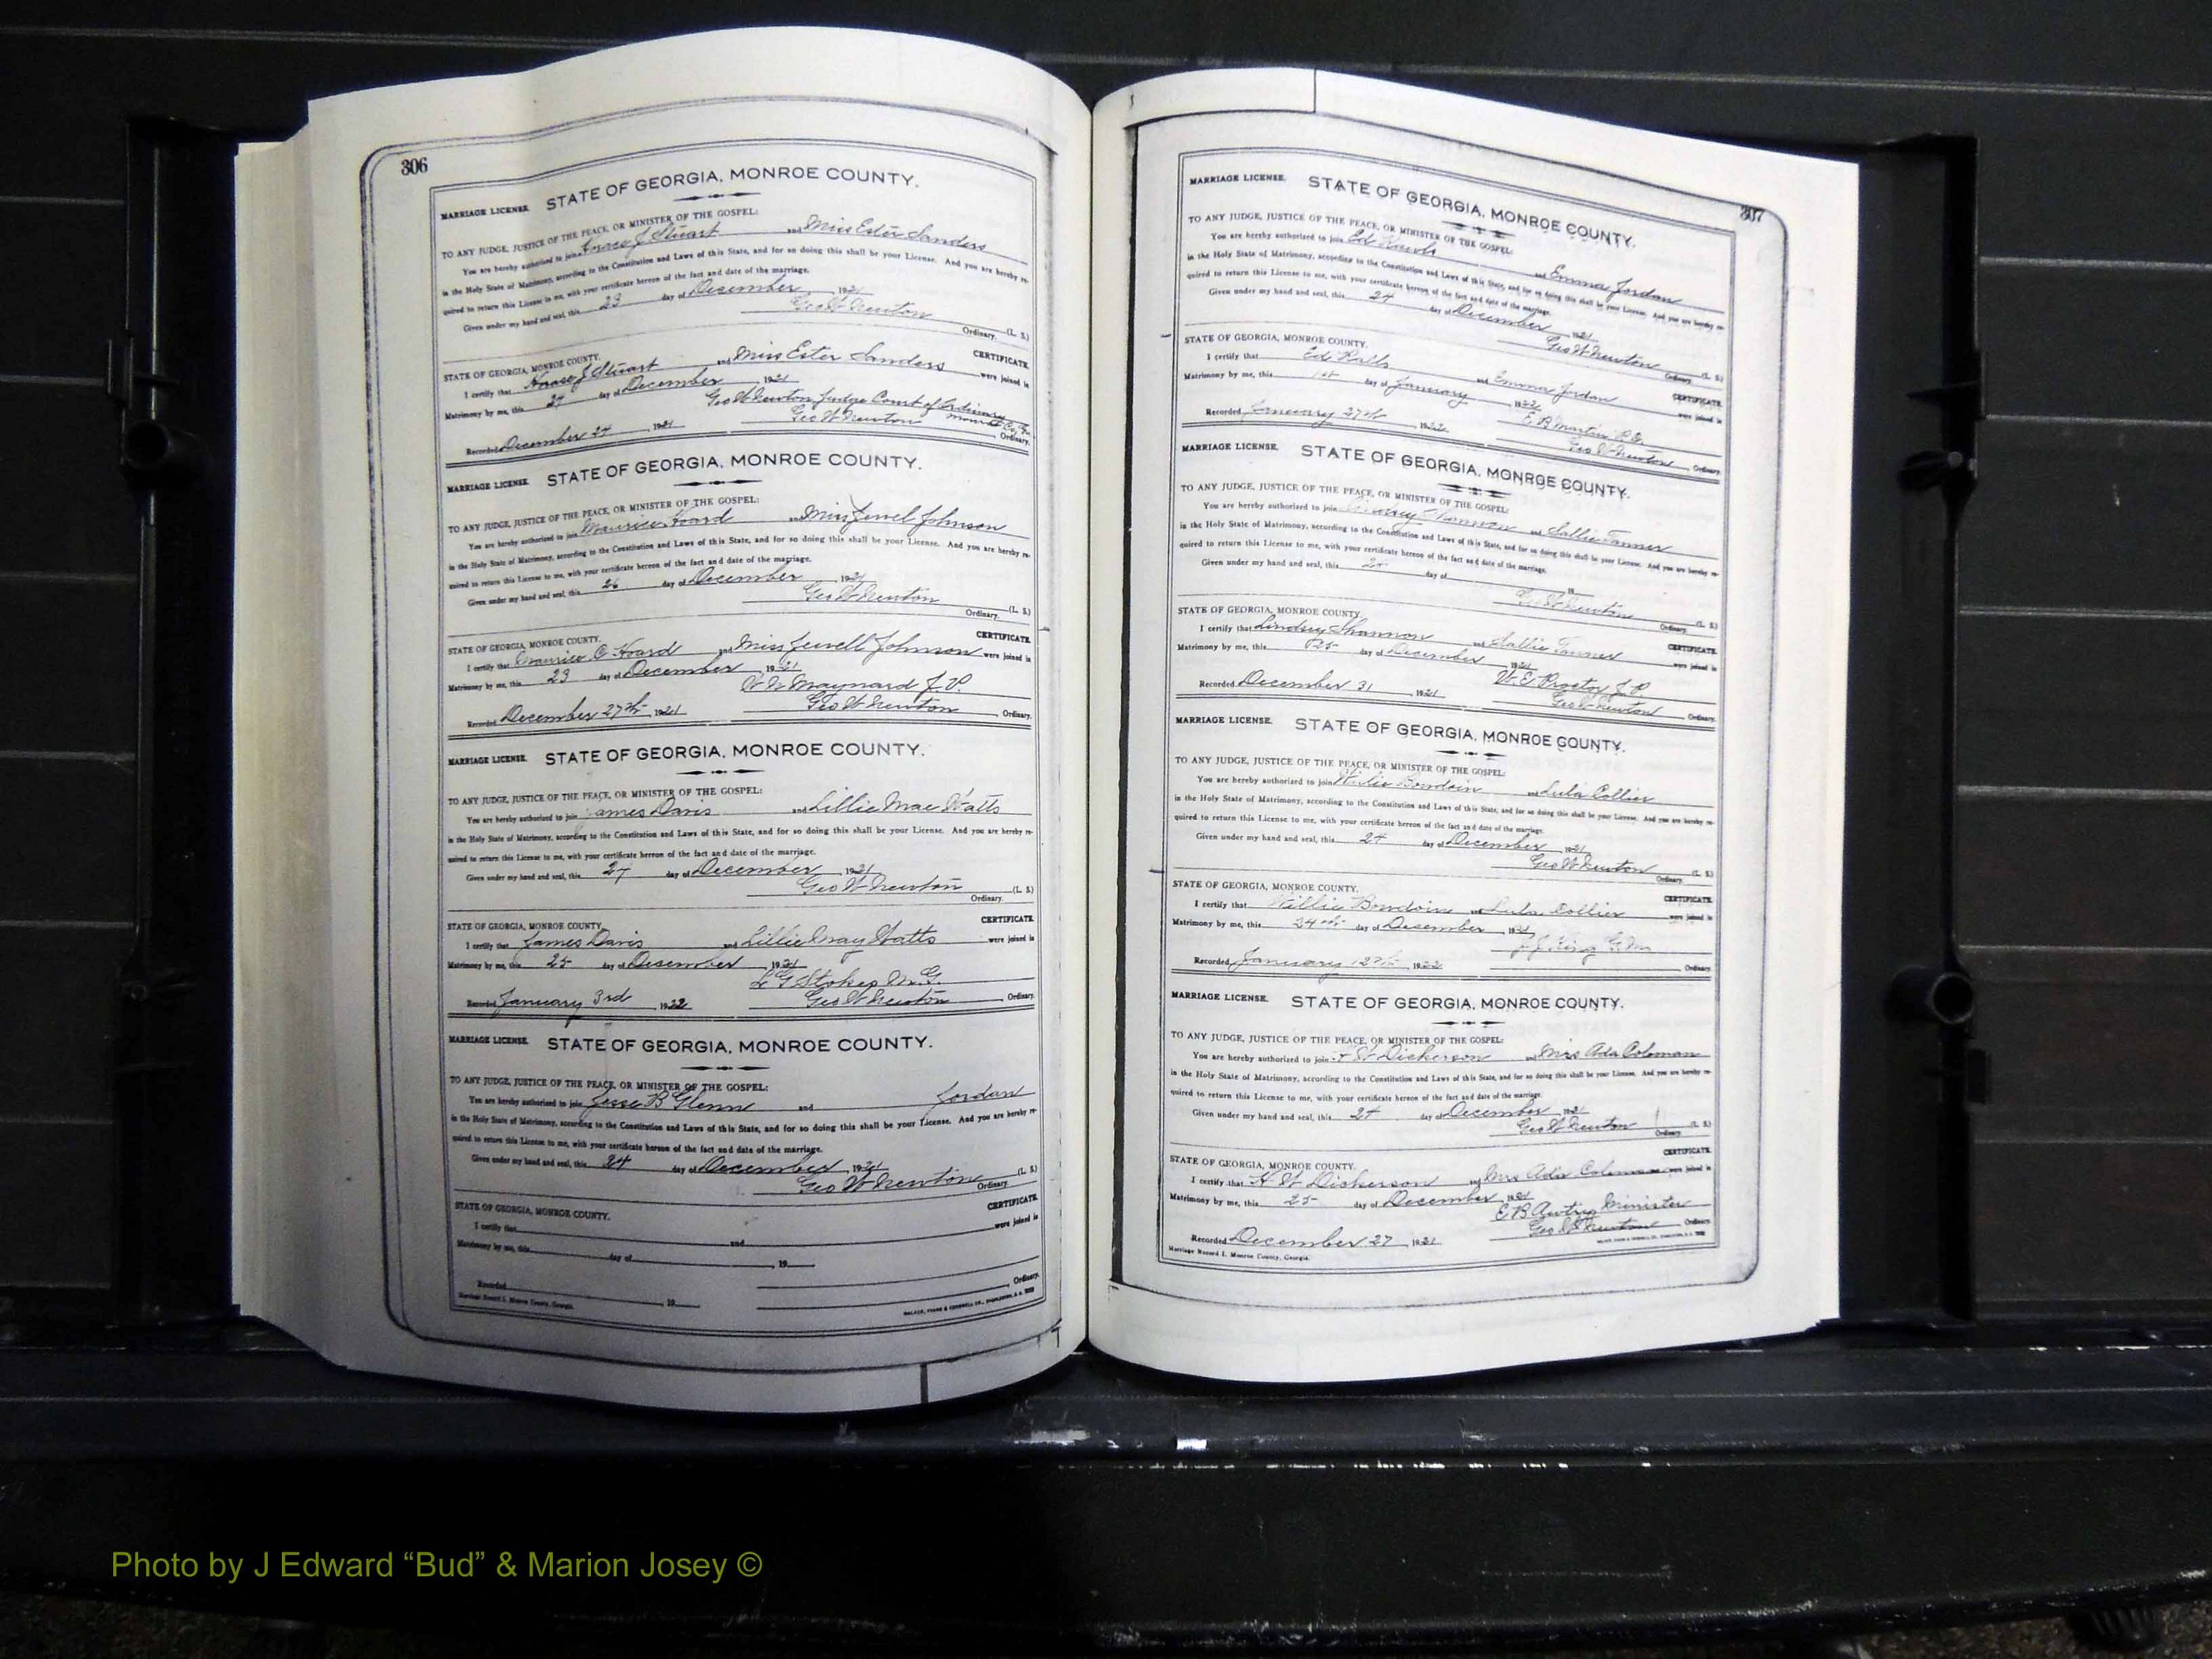 306
MARRIAGE LICENSE. STATE OF GEORGIA, MONROE COUNTY.
TO ANY JUDGE, JUSTICE OF THE PEACE, OR MINISTER OF THE GOSPEL:
You are hereby authorized to join Horace J Stuart and Miss Ester Sanders
in the Holy State of Matrimony, according to the Constitution and Laws of this State, and for so doing this shall be your License. And you are hereby re-
quired to return this License to me, with your certificate hereon of the fact and date of the marriage.
Given under my hand and seal, this 23 day of December 1921
Geo W Newton (L. S.)
Ordinary.
STATE OF GEORGIA, MONROE COUNTY. CERTIFICATE.
I certify that Horace J Stuart and Miss Ester Sanders were joined in
Matrimony by me, this 24 day of December 1921
Geo W Newton Judge Court of Ordinary
Monroe Co, Ga
Recorded December 24 1921 Geo W Newton Ordinary.
MARRIAGE LICENSE. STATE OF GEORGIA, MONROE COUNTY.
TO ANY JUDGE, JUSTICE OF THE PEACE, OR MINISTER OF THE GOSPEL:
You are hereby authorized to join Maurice Hoard and Miss Jewel Johnson
in the Holy State of Matrimony, according to the Constitution and Laws of this State, and for so doing this shall be your License. And you are hereby re-
quired to return this License to me, with your certificate hereon of the fact and date of the marriage.
Given under my hand and seal, this 26 day of December 1921
Geo W Newton (L. S.)
Ordinary.
STATE OF GEORGIA, MONROE COUNTY. CERTIFICATE.
I certify that Maurice C Hoard and Miss Jewell Johnson were joined in
Matrimony by me, this 23 day of December 1921
Maynard J.P.
Recorded December 27th 1921 Geo W Newton Ordinary.
MARRIAGE LICENSE. STATE OF GEORGIA, MONROE COUNTY.
TO ANY JUDGE, JUSTICE OF THE PEACE, OR MINISTER OF THE GOSPEL:
You are hereby authorized to join James Davis and Lillie Mae Watts
in the Holy State of Matrimony, according to the Constitution and Laws of this State, and for so doing this shall be your License. And you are hereby re-
quired to return this License to me, with your certificate hereon of the fact and date of the marriage.
Given under my hand and seal, this 27 day of December 1921
Geo W Newton (L. S.)
Ordinary.
STATE OF GEORGIA, MONROE COUNTY. CERTIFICATE.
I certify that James Davis and Lillie May Watts were joined in
Matrimony by me, this 25 day of December 1921
L G Stokes M.G.
Recorded January 3rd 1922 Geo W Newton Ordinary.
MARRIAGE LICENSE. STATE OF GEORGIA, MONROE COUNTY.
TO ANY JUDGE, JUSTICE OF THE PEACE, OR MINISTER OF THE GOSPEL:
You are hereby authorized to join Jesse B Glenn and Jordan
in the Holy State of Matrimony, according to the Constitution and Laws of this State, and for so doing this shall be your License. And you are hereby re-
quired to return this License to me, with your certificate hereon of the fact and date of the marriage.
Given under my hand and seal, this 24 day of December 1921
Geo W Newton (L. S.)
Ordinary.
STATE OF GEORGIA, MONROE COUNTY. CERTIFICATE.
I certify that and were joined in
Matrimony by me, this day of , 19
Recorded 19 Ordinary.
Marriage Record I. Monroe County, Georgia.
307
MARRIAGE LICENSE. STATE OF GEORGIA, MONROE COUNTY.
TO ANY JUDGE, JUSTICE OF THE PEACE, OR MINISTER OF THE GOSPEL:
You are hereby authorized to join Ed and Emma Jordan
in the Holy State of Matrimony, according to the Constitution and Laws of this State, and for so doing this shall be your License. And you are hereby re-
quired to return this License to me, with your certificate hereon of the fact and date of the marriage.
Given under my hand and seal, this 24 day of December 1921
Geo W Newton (L. S.)
Ordinary.
STATE OF GEORGIA, MONROE COUNTY. CERTIFICATE.
I certify that Ed Ralls and Emma Jordan were joined in
Matrimony by me, this 1st day of January 1922
E B Martin
Recorded January 27th 1922 Geo W Newton Ordinary.
MARRIAGE LICENSE. STATE OF GEORGIA, MONROE COUNTY.
TO ANY JUDGE, JUSTICE OF THE PEACE, OR MINISTER OF THE GOSPEL:
You are hereby authorized to join Lindsey Shannon and Sallie Tanner
in the Holy State of Matrimony, according to the Constitution and Laws of this State, and for so doing this shall be your License. And you are hereby re-
quired to return this License to me, with your certificate hereon of the fact and date of the marriage.
Given under my hand and seal, this day of 19
Geo W Newton (L. S.)
Ordinary.
STATE OF GEORGIA, MONROE COUNTY. CERTIFICATE.
I certify that Lindsey Shannon and Sallie Tanner were joined in
Matrimony by me, this 25 day of December 1921
W. E. Proctor J.P.
Recorded December 31 1921 Geo W Newton Ordinary.
MARRIAGE LICENSE. STATE OF GEORGIA, MONROE COUNTY.
TO ANY JUDGE, JUSTICE OF THE PEACE, OR MINISTER OF THE GOSPEL:
You are hereby authorized to join Willie Bowdoin and Lula Collier
in the Holy State of Matrimony, according to the Constitution and Laws of this State, and for so doing this shall be your License. And you are hereby re-
quired to return this License to me, with your certificate hereon of the fact and date of the marriage.
Given under my hand and seal, this 24 day of December 1921
Geo W Newton (L. S.)
Ordinary.
STATE OF GEORGIA, MONROE COUNTY. CERTIFICATE.
I certify that Willie Bowdoin and Lula Collier were joined in
Matrimony by me, this 24th day of December 1921
J. J. King G.M.
Recorded January 12th 1922 Ordinary.
MARRIAGE LICENSE. STATE OF GEORGIA, MONROE COUNTY.
TO ANY JUDGE, JUSTICE OF THE PEACE, OR MINISTER OF THE GOSPEL:
You are hereby authorized to join H W Dickerson and Mrs Ada Coleman
in the Holy State of Matrimony, according to the Constitution and Laws of this State, and for so doing this shall be your License. And you are hereby re-
quired to return this License to me, with your certificate hereon of the fact and date of the marriage.
Given under my hand and seal, this 24 day of December 1921
Geo W Newton (L. S.)
Ordinary.
STATE OF GEORGIA, MONROE COUNTY. CERTIFICATE.
I certify that H W Dickerson and Mrs Ada Coleman were joined in
Matrimony by me, this 25 day of December 1921
E B Awtry Minister
Recorded December 27, 1921 Geo W Newton Ordinary
Marriage Record I. Monroe County, Georgia.
Photo by J Edward “Bud” & Marion Josey ©